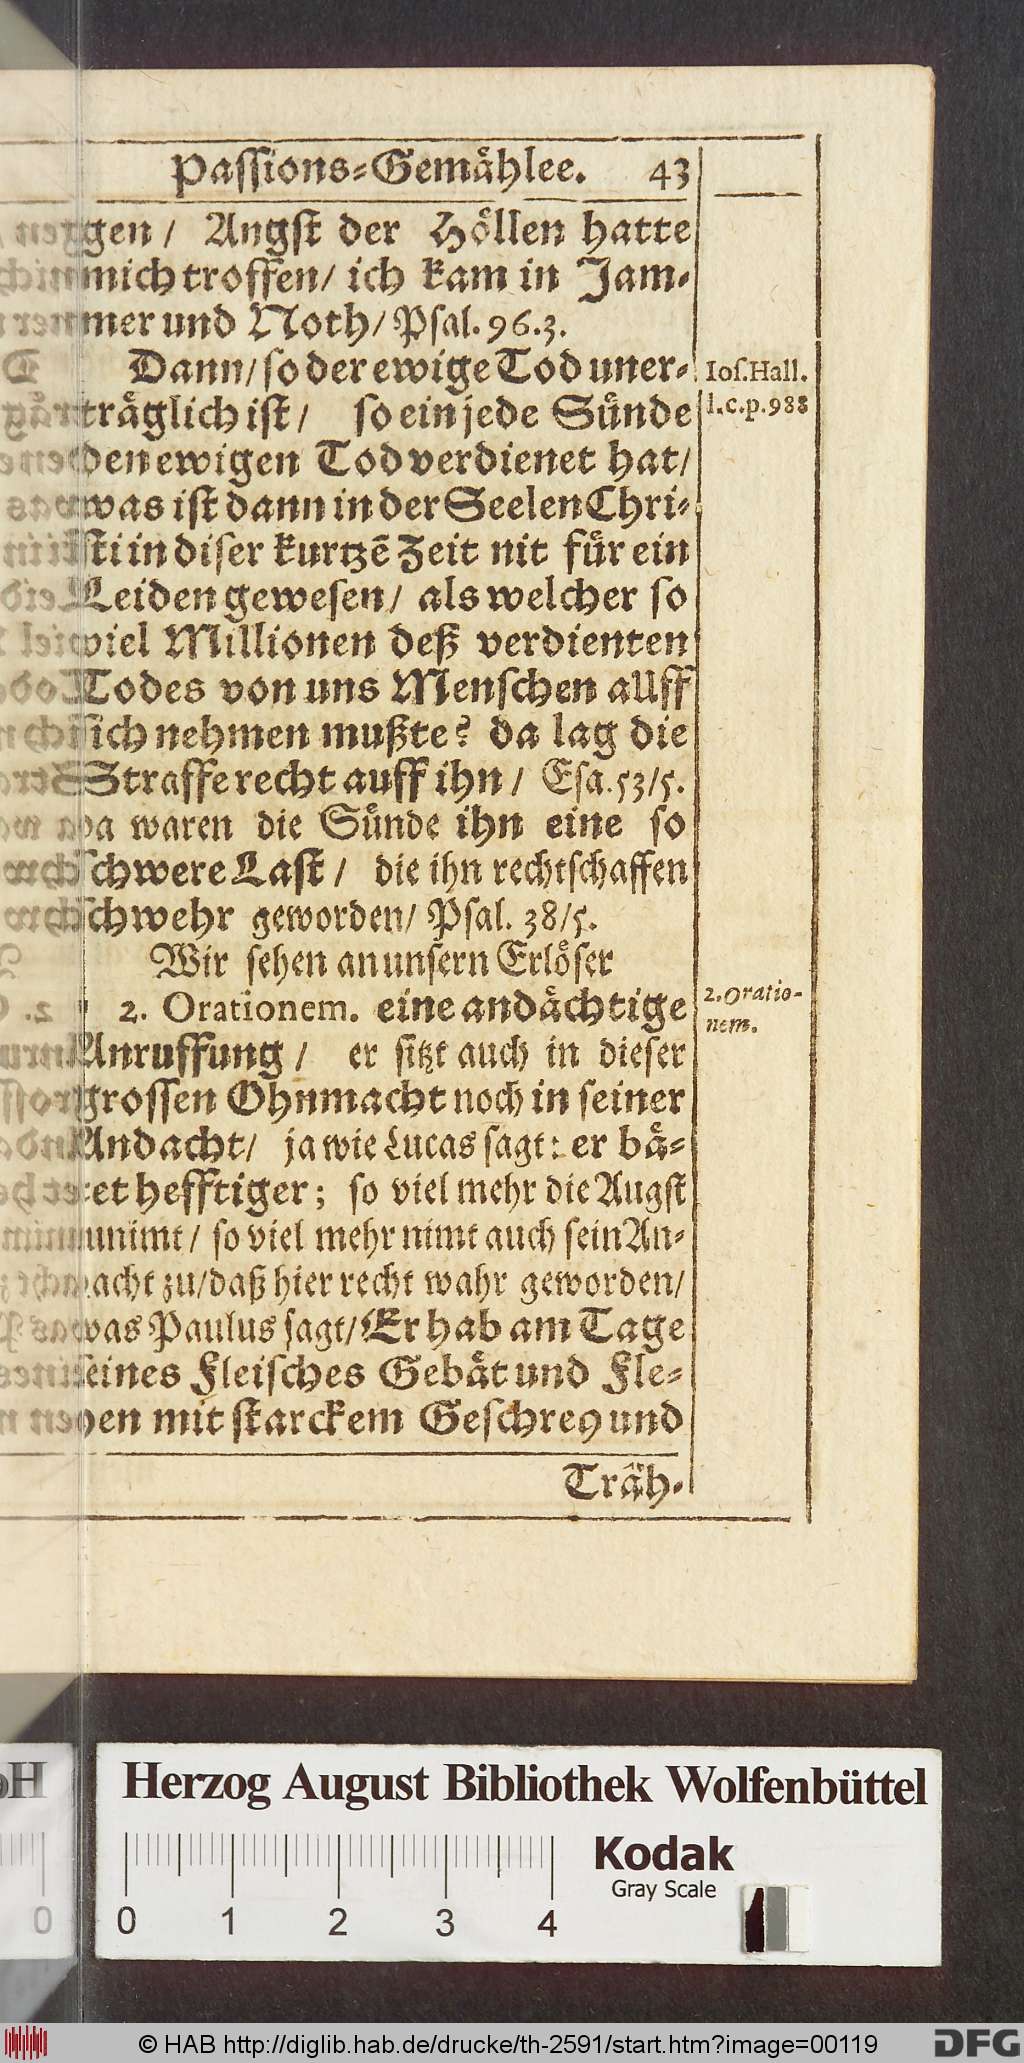 Passions-Gemählee. 43
gen / Angst der Höllen hatte
mich troffen / ich kam in Jam-
mer und Noth / Psal. 96.3.
Dann / so der ewige Tod uner-
träglich ist / so ein jede Sünde
den ewigen Tod verdienet hat /
was ist dann in der Seelen Chri-
sti in diser kurtzē Zeit nit für ein
Leiden gewesen / als welcher so
viel Millionen deß verdienten
Todes von uns Menschen auff
sich nehmen mußte? da lag die
Straffe recht auff ihn / Esa. 53/5.
da waren die Sünde ihn eine so
schwere Last / die ihn rechtschaffen
schwehr geworden / Psal. 38/5.
Wir sehen an unsern Erlöser
2. Orationem. eine andächtige
Anruffung / er sitzt auch in dieser
grossen Ohnmacht noch in seiner
Andacht / ja wie Lucas sagt: er bä-
tet hefftiger; so viel mehr die Augst
unimt / so viel mehr nimt auch sein An-
dacht zu / daß hier recht wahr geworden /
was Paulus sagt / Er hab am Tage
seines Fleisches Gebät und Fle-
hen mit starckem Geschrey und
Träh-
Ios. Hall.
l.c.p.988
2. Oratio-
nem.
Herzog August Bibliothek Wolfenbüttel
Kodak
Gray Scale
0 0 1 2 3 4
© HAB http://diglib.hab.de/drucke/th-2591/start.htm?image=00119
DFG